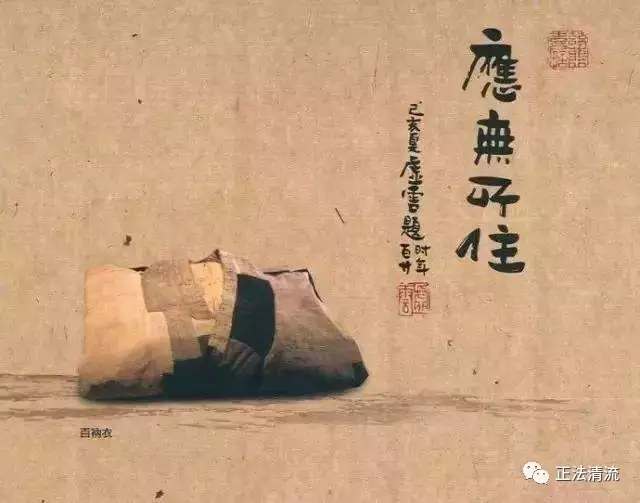 應無所住
己亥夏虛雲題
时年
百廿
百衲衣
正法清流